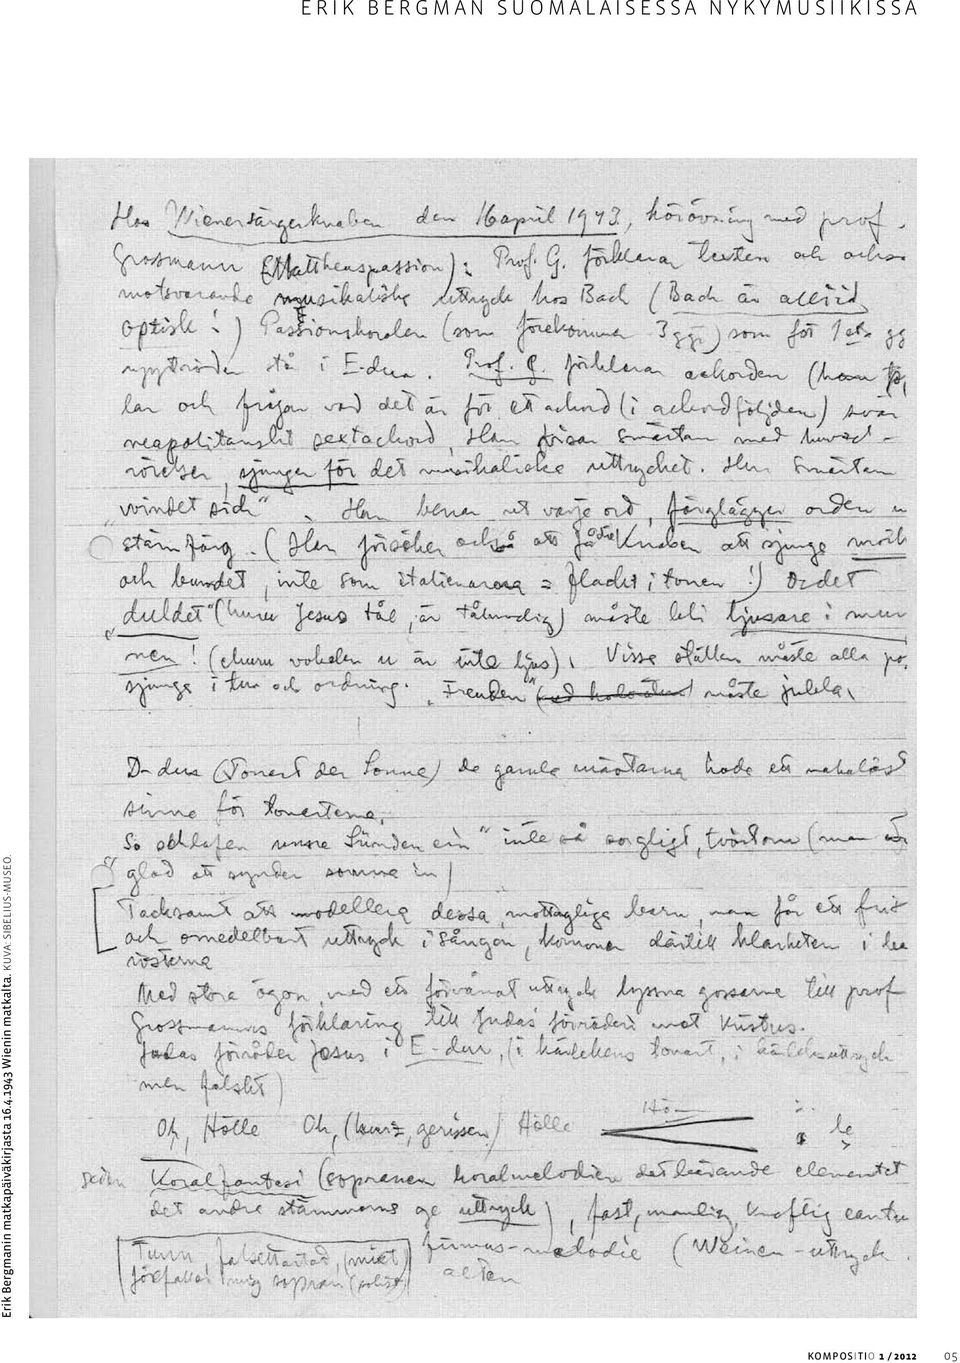 ERIK BERGMAN SUOMALAISESSA NYKYMUSIIKISSA
Hos Wienersängerknaben den 16 april 1943, körövning med prof.
Grossmann (Mattheuspassion): Prof. G. förklarar texten och också
motsvarande musikaliske uttryck hos Bach (Bach är alltid
optisk!) Passionskoralen (som förekommer 3 ggr) som för
i E-dur. Prof. G. förklarar ackorden (
lar och frågar vad det är för ett ackord (i ackordföljden) svår
neapolitanskt sextackord, Han visar Smärtan med huvud-
rörelser, sjunger för det musikaliske uttrycket. Smärtan
windet sich". Han varje ord, färglägger orden
stämfärg. (Han försöker också att få Knaben att sjunga
och, inte som italienarna = flackt i tonen!) Ordet
duldet" (huru Jesus tål, är tålmodig) måste bli ljusare i mun
nen! (ehuru vokalen u är inte ljus). Vissa ställen måste alla
sjunga i tur och ordning. "Freuden" måste jubla.
D-dur (Tonart der Sonne) de gamla mästarna hade ett makalöst
sinne för tonarterna.
So schlafen unsre Sünden ein" inte så sorgligt, tvärtom (man är
glad att synder somna in)
Tacksamt att modellera dessa mottagliga barn, man får ett
och omedelbart uttryck i sången, kommer därtill klarheten i
rösterna
Med stora ögon, med ett förvånat uttryck lyssna gossarna till prof
Grossmanns förklaring till Judas' förräderi mot Kristus.
Judas förråder Jesus i E-dur, (i kärlekens tonart, i kärleksuttryck
men falskt)
Oh, Hölle Oh, (kurz, gerissen) Hölle Hö- le
Koralfantasi (sopranen koralmelodien det bärande elementet
det andra stämmorna ge uttryck), fast, manlig, kraftig cantus
firmus-melodie (Weinen-uttryck
alten
Erik Bergmanin matkapäiväkirjasta 16.4.1943 Wienin matkalta. KUVA: SIBELIUS-MUSEO.
KOMPOSITIO 1 / 2012 05